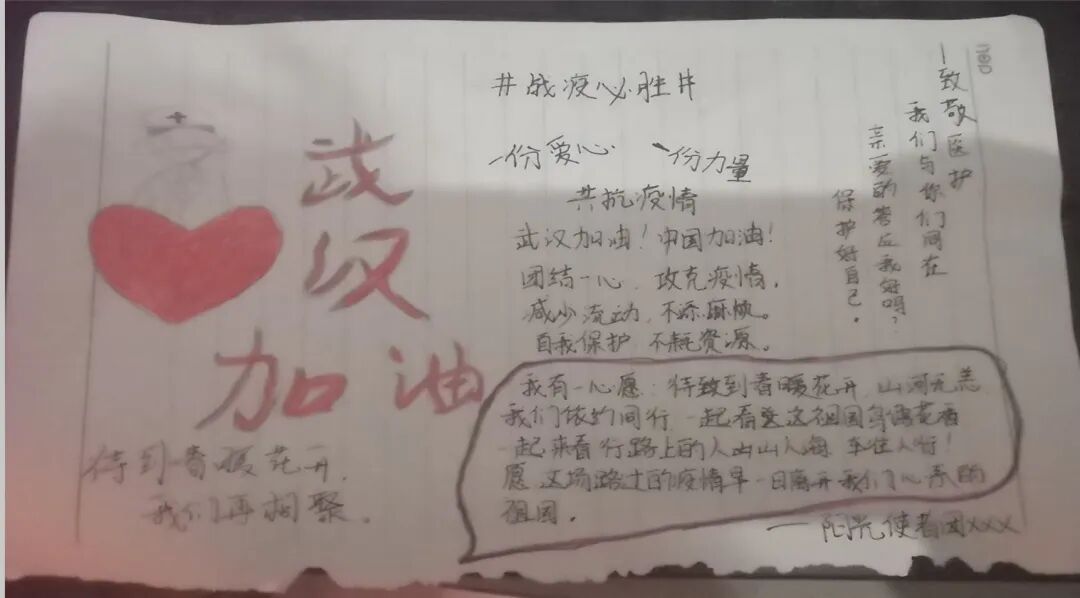 武汉
加油
待到春暖花开,
我们再相聚.
#战疫必胜#
一份爱心 一份力量
共抗疫情
武汉加油!中国加油!
团结一心,攻克疫情,
减少流动,不添麻烦。
自我保护,不耗资源。
一致敬医护
我们与你们同在
亲爱的
保护好自己.
我有一心愿:待到春暖花开,山河无恙
我们依约同行,一起看这祖国鸟语花香
一起来看行路上的人山人海,车往人行!
愿这场路过的疫情早一日离开我们心系的
祖国.
——阳光使者团xxx